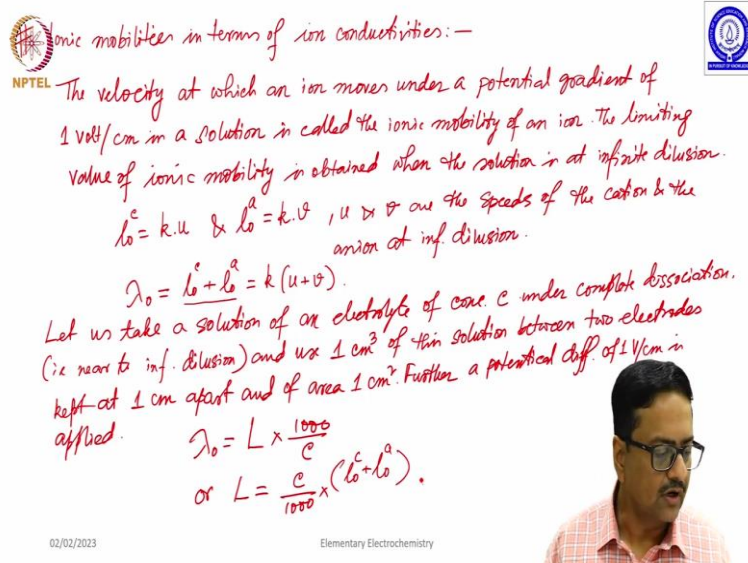 Ionic mobilities in terms of ion conductivities:—
NPTEL
The velocity at which an ion moves under a potential gradient of
1 volt/cm in a solution is called the ionic mobility of an ion. The limiting
value of ionic mobility is obtained when the solution is at infinite dilusion.
l₀ᶜ = k.u & l₀ᵃ = k.v, u & v are the speeds of the cation & the
anion at inf. dilusion.
λ₀ = l₀ᶜ + l₀ᵃ = k(u+v).
Let us take a solution of an electrolyte of conc. c under complete dissociation.
(ie near to inf. dilusion) and use 1 cm³ of this solution between two electrodes
kept at 1 cm apart and of area 1 cm². Further a potential diff. of 1 V/cm is
applied.
λ₀ = L × 1000/c
or L = c/1000 × (l₀ᶜ + l₀ᵃ).
02/02/2023
Elementary Electrochemistry